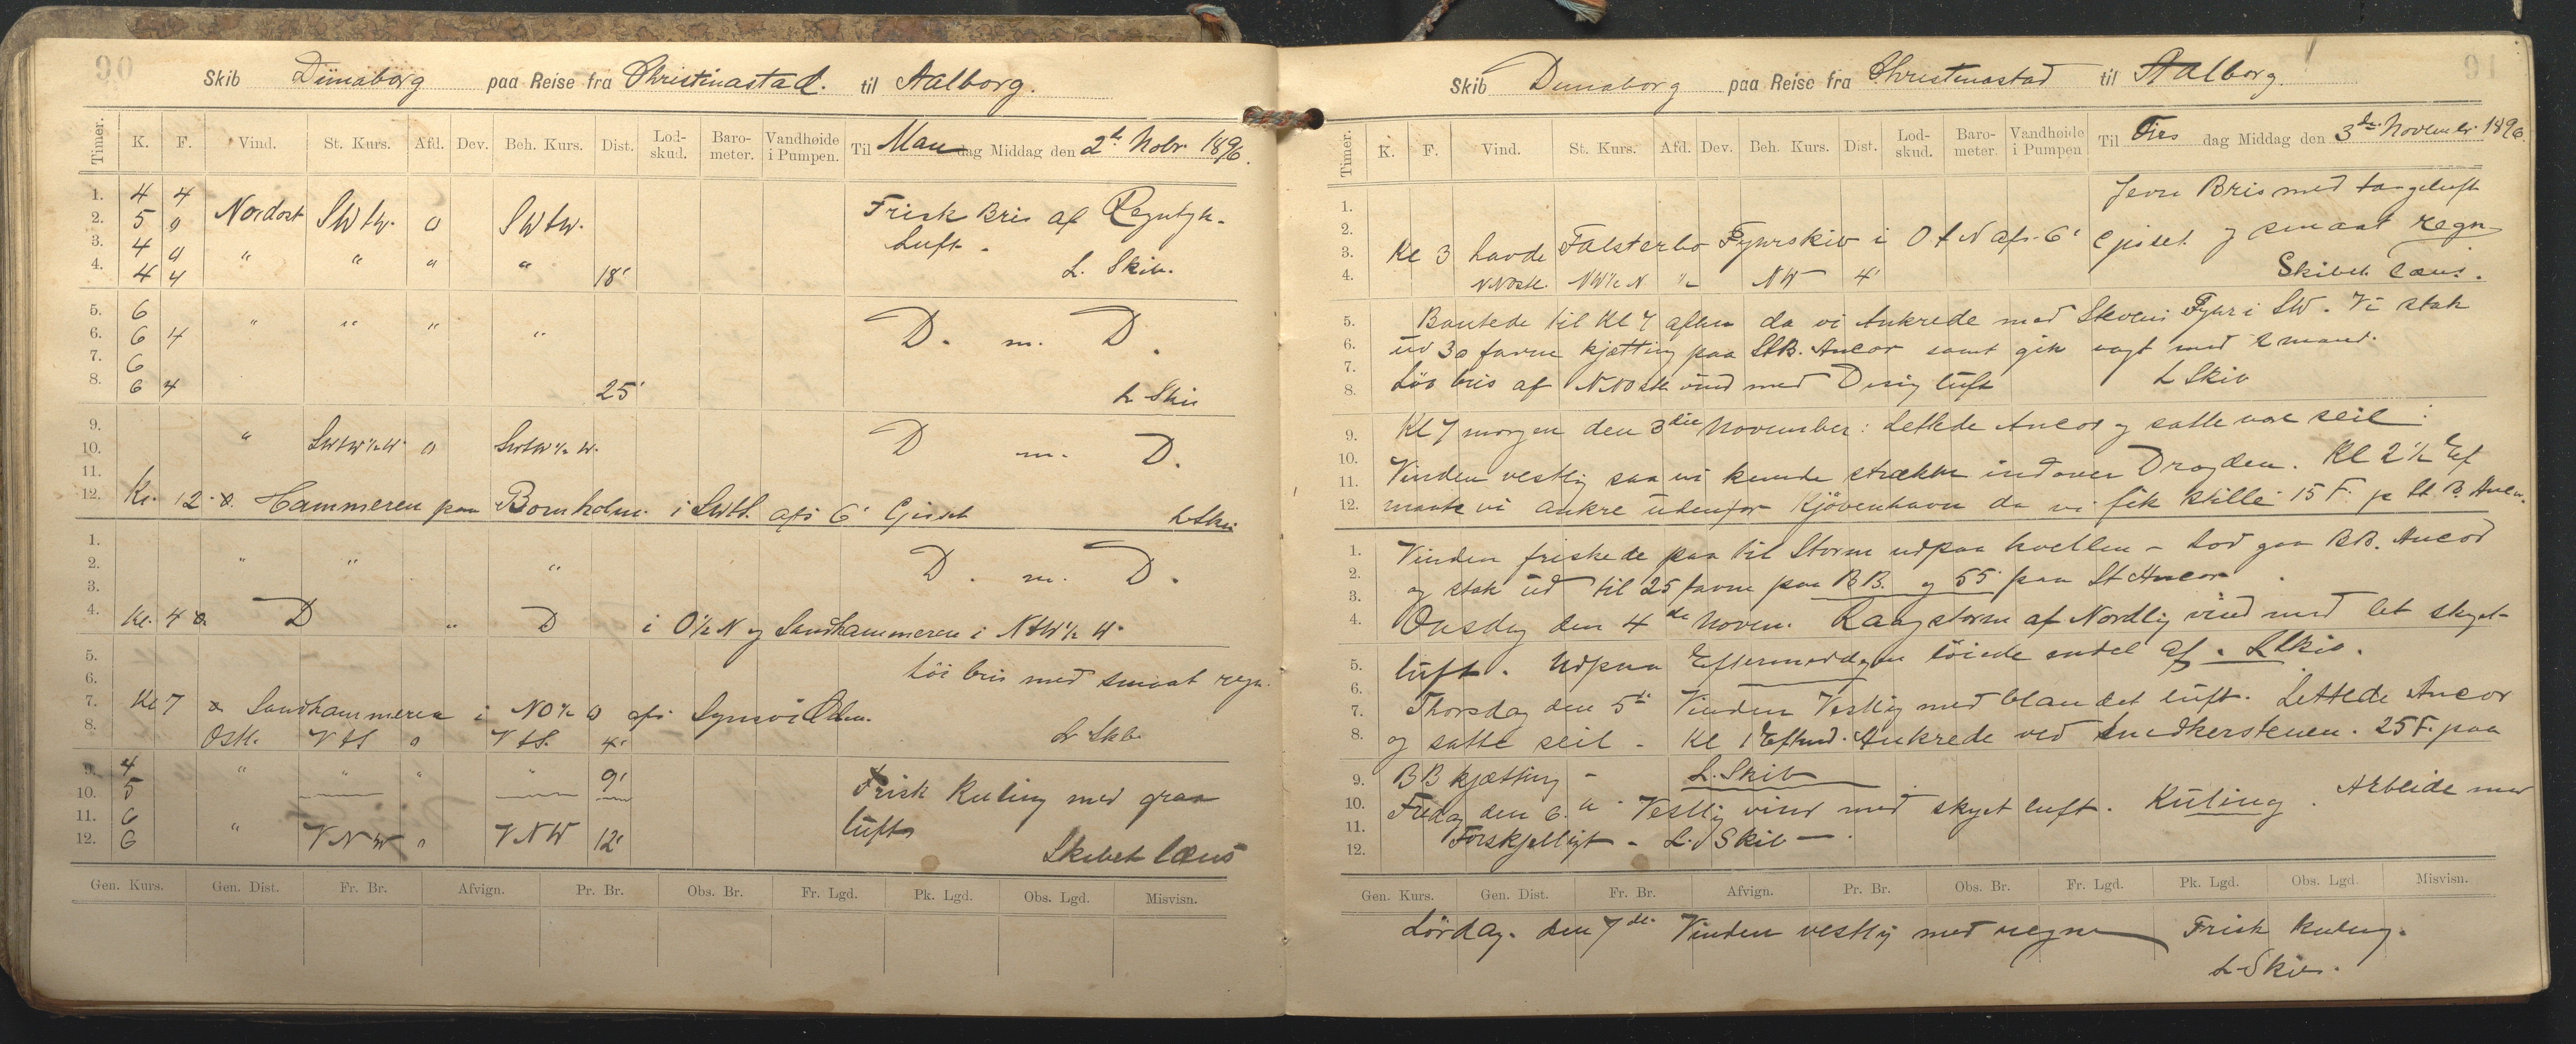 90
Skib Dünaborg paa Reise fra Christinastad. til Aalborg.
Timer. K. F. Vind. St. Kurs. Afd. Dev. Beh. Kurs. Dist. Lod-skud. Baro-meter. Vandhøide i Pumpen. Til Man dag Middag den 2d Nobr 1896.
1. 4 4
2. 5 0 Nordost SWtW. 0 SWtW. Frisk Bris af
3. 4 0 " " " " Luft -
4. 4 4 18' L. Skib.
5. 6
6. 6 4 " " " " D. m. D.
7. 6
8. 6 4 25' L Skib
9. " SWtW½W 0 SWtW½W. D m. D.
10.
11.
12. Kl. 12 Hammeren paa Bornholm i SWtS. afs 6' Gisset L Skib
1. " " " D. m. D.
2.
3.
4. Kl. 4 D " D i O½N og Sandhammeren i NtW½W.
5.
6. Löi bris med smaat regn.
7. Kl 7 Sandhammeren i NO½O afs
8. Ostl. VtS 0 VtS. 4' L Skb.
9. 4 " " " " 9'
10. 5 Frisk Kuling med graa
11. 6 luft
12. 6 " VNW 0 VNW 12' Skibet læns
Gen. Kurs. Gen. Dist. Fr. Br. Afvign. Pr. Br. Obs. Br. Fr. Lgd. Pk. Lgd. Obs. Lgd. Misvisn.
91
Skib Dunaborg paa Reise fra Christinastad til Aalborg.
Timer. K. F. Vind. St. Kurs. Afd. Dev. Beh. Kurs. Dist. Lod-skud. Baro-meter. Vandhøide i Pumpen Til Tirs dag Middag den 3de November 1896.
1. Jevn Bris med taageluft
2. og smaat regn
3. Kl 3 havde Falsterbo Fyrskib i OtN afs. 6' gisset
4. NNostl. NW½N " NW 4' Skibet læns.
5. Bautede til Kl 7 aften da vi Ankrede med Stevens Fyr i SW. Vi stak
6. ud 30 favne kjætting paa StB. Ancor samt gik vagt med 2 mand.
7.
8. Löi bris af NNostl vind med Disig luft L Skib
9. Kl 7 morgen den 3die November: Lettede Ancor og satte vor seil:
10.
11. Vinden vestlig saa vi kunde strække indover Drogden. Kl 2½ Ef
12. maate vi ankre udenfor Kjövenhavn da vi fik stille 15 F. p St. B. Anc.
1. Vinden friskede paa til Storm udpaa kvellen - Lod gaa BB. Ancor
2. og stak ud til 25 favne paa BB. og 55 paa St Ancor.
3.
4. Onsdag den 4de Novem. storm af Nordlig vind med let skyet
5. luft. Udpaa Eftermiddagen löiede endel af. L Skib.
6.
7. Thorsdag den 5te Vinden Vestlig med blandet luft. Lettede Ancor
8. og satte seil - Kl 1 Eftmd. Ankrede ved Snedkerstenen. 25 F. paa
9. BB kjætting - L. Skib
10. Fredag den 6. Vestlig vind med skyet luft. Kuling. Arbeide med
11.
12. Forskjelligt - L. Skib -
Gen. Kurs. Gen. Dist. Fr. Br. Afvign. Pr. Br. Obs. Br. Fr. Lgd. Pk. Lgd. Obs. Lgd. Misvisn.
Lördag. den 7de Vinden vestlig med regn Frisk Kuling.
L Skib.